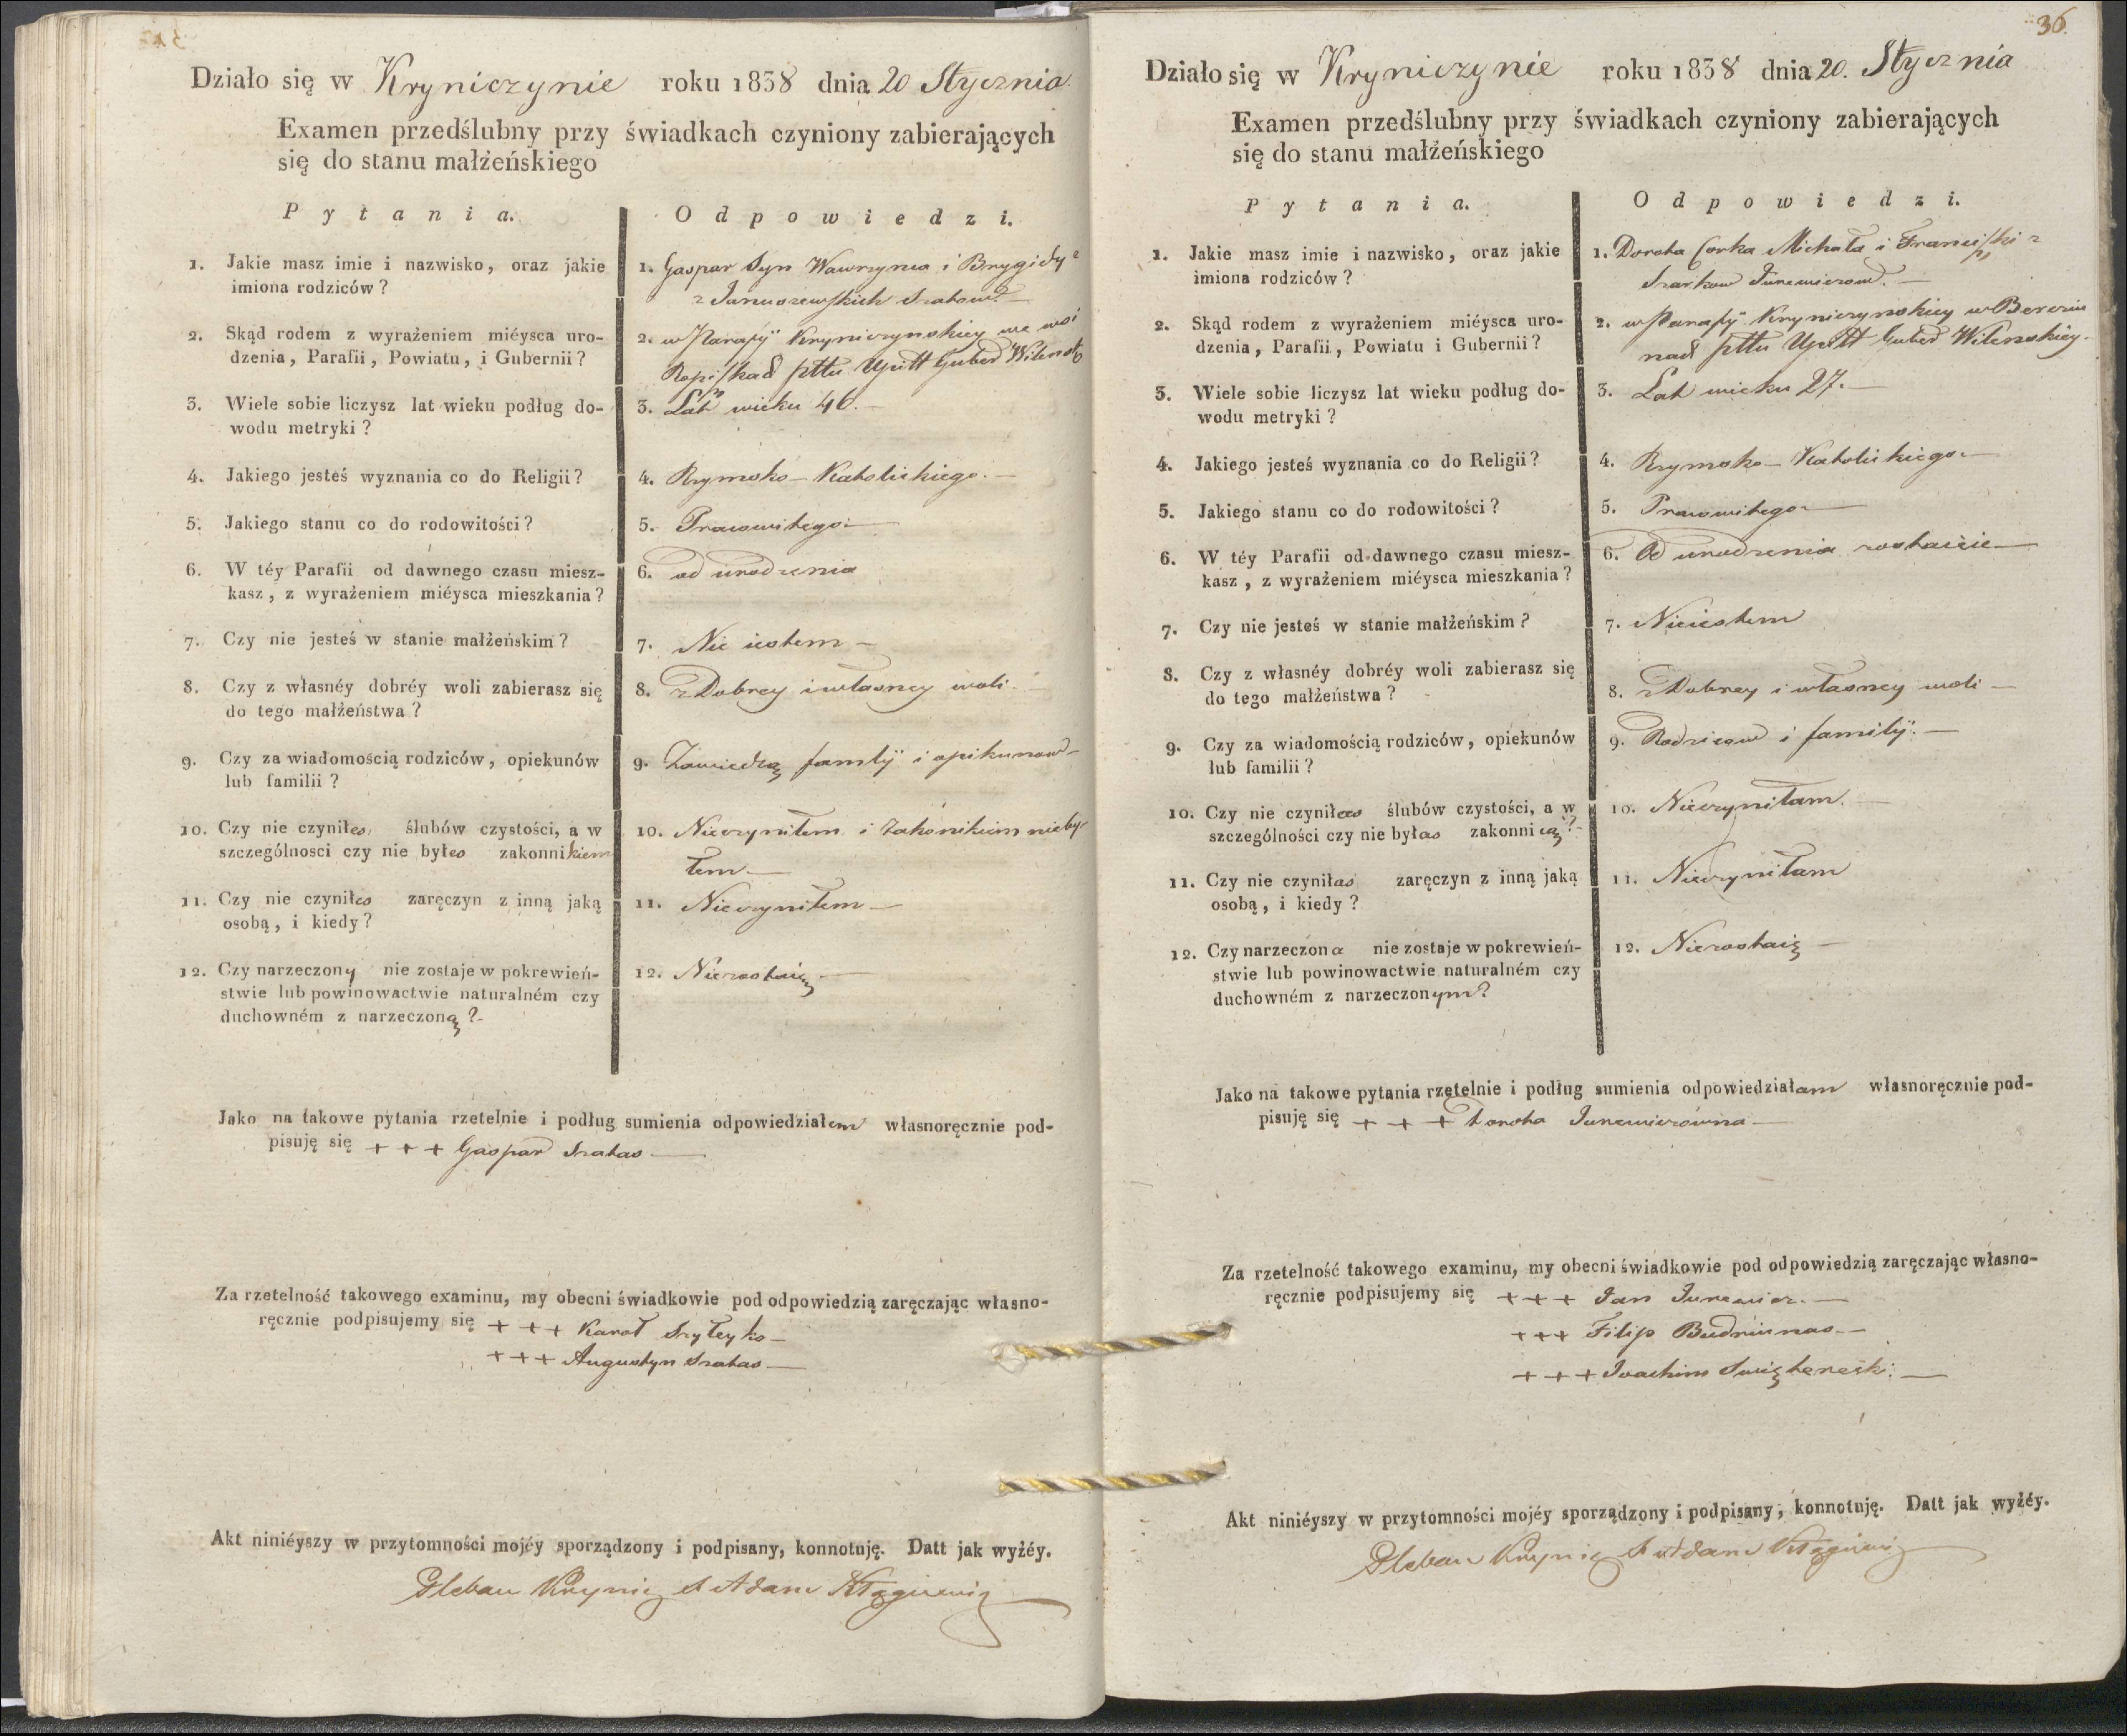 Działo się w Kryniczynie roku 1838 dnia 20 Stycznia.
Examen przedślubny przy świadkach czyniony zabierających
się do stanu małżeńskiego
Pytania.
Odpowiedzi.
1. Jakie masz imie i nazwisko, oraz jakie
imiona rodziców?
1. Gaspar Syn Wawrzynca i Brygidy
z Januszewskich Szatow
2. Skąd rodem z wyrażeniem miéysca uro-
dzenia, Parafii, Powiatu, i Gubernii?
2. w Parafij Kryniczynskiey we wsi
pttu Upitt Guber Wilensk
3. Wiele sobie liczysz lat wieku podług do-
wodu metryki?
3. Lat wieku 46.—
4. Jakiego jesteś wyznania co do Religii?
4. Rzymsko-Katolickiego.—
5. Jakiego stanu co do rodowitości?
5. Pracowitego.—
6. W téy Parafii od dawnego czasu miesz-
kasz, z wyrażeniem miéysca mieszkania?
6. od urodzenia
7. Czy nie jesteś w stanie małżeńskim?
7. Nie iestem—
8. Czy z własnéy dobréy woli zabierasz się
do tego małżeństwa?
8. z Dobrey i własney woli.
9. Czy za wiadomością rodziców, opiekunów
lub familii?
9. Zawiedzą familij i opikunow—
10. Czy nie czyniłes ślubów czystości, a w
szczególnosci czy nie byłes zakonnikiem
10. Nieczyniłem i Zakonikiem nieby-
łem—
11. Czy nie czyniłes zaręczyn z inną jaką
osobą, i kiedy?
11. Nieczyniłem—
12. Czy narzeczony nie zostaje w pokrewień-
stwie lub powinowactwie naturalném czy
duchowném z narzeczoną?
12. Niezostaię—
Jako na takowe pytania rzetelnie i podług sumienia odpowiedziałem własnoręcznie pod-
pisuję się +++ Gaspar Szatas—
Za rzetelność takowego examinu, my obecni świadkowie pod odpowiedzią zaręczając własno-
ręcznie podpisujemy się +++ Karol Szyłeyko—
+++ Augustyn Szatas—
Akt niniéyszy w przytomności mojéy sporządzony i podpisany, konnotuję. Datt jak wyżéy.
Pleban Krynicz Adam
36.
Działo się w Kryniczynie roku 1838 dnia 20. Stycznia
Examen przedślubny przy świadkach czyniony zabierających
się do stanu małżeńskiego
Pytania.
Odpowiedzi.
1. Jakie masz imie i nazwisko, oraz jakie
imiona rodziców?
1. Dorota Corka Michała i Franciszki z
Szarkow Jurewiczow.—
2. Skąd rodem z wyrażeniem miéysca uro-
dzenia, Parafii, Powiatu i Gubernii?
2. w Parafij Kryniczynskiey w
pttu Upitt Guber Wilenskiey.
3. Wiele sobie liczysz lat wieku podług do-
wodu metryki?
3. Lat wieku 27.—
4. Jakiego jesteś wyznania co do Religii?
4. Rzymsko-Katolickiego.—
5. Jakiego stanu co do rodowitości?
5. Pracowitego—
6. W téy Parafii od dawnego czasu miesz-
kasz, z wyrażeniem miéysca mieszkania?
6. Od urodzenia zostaiecie—
7. Czy nie jesteś w stanie małżeńskim?
7. Nieiestem
8. Czy z własnéy dobréy woli zabierasz się
do tego małżeństwa?
8. z Dobrey i własney woli—
9. Czy za wiadomością rodziców, opiekunów
lub familii?
9. Rodzicow i familij.—
10. Czy nie czyniłas ślubów czystości, a w
szczególności czy nie byłas zakonnicą?
10. Nieczyniłam.—
11. Czy nie czyniłas zaręczyn z inną jaką
osobą, i kiedy?
11. Nieczyniłam
12. Czy narzeczona nie zostaje w pokrewień-
stwie lub powinowactwie naturalném czy
duchowném z narzeczonym?
12. Niezostaię—
Jako na takowe pytania rzetelnie i podług sumienia odpowiedziałam własnoręcznie pod-
pisuję się +++ Dorota Jurewiczowna—
Za rzetelność takowego examinu, my obecni świadkowie pod odpowiedzią zaręczając własno-
ręcznie podpisujemy się +++ Jan Jurewicz.—
+++ Filip Budniunas—
+++ Joachim—
Akt niniéyszy w przytomności mojéy sporządzony i podpisany, konnotuję. Datt jak wyżéy.
Pleban Krynicz Adam